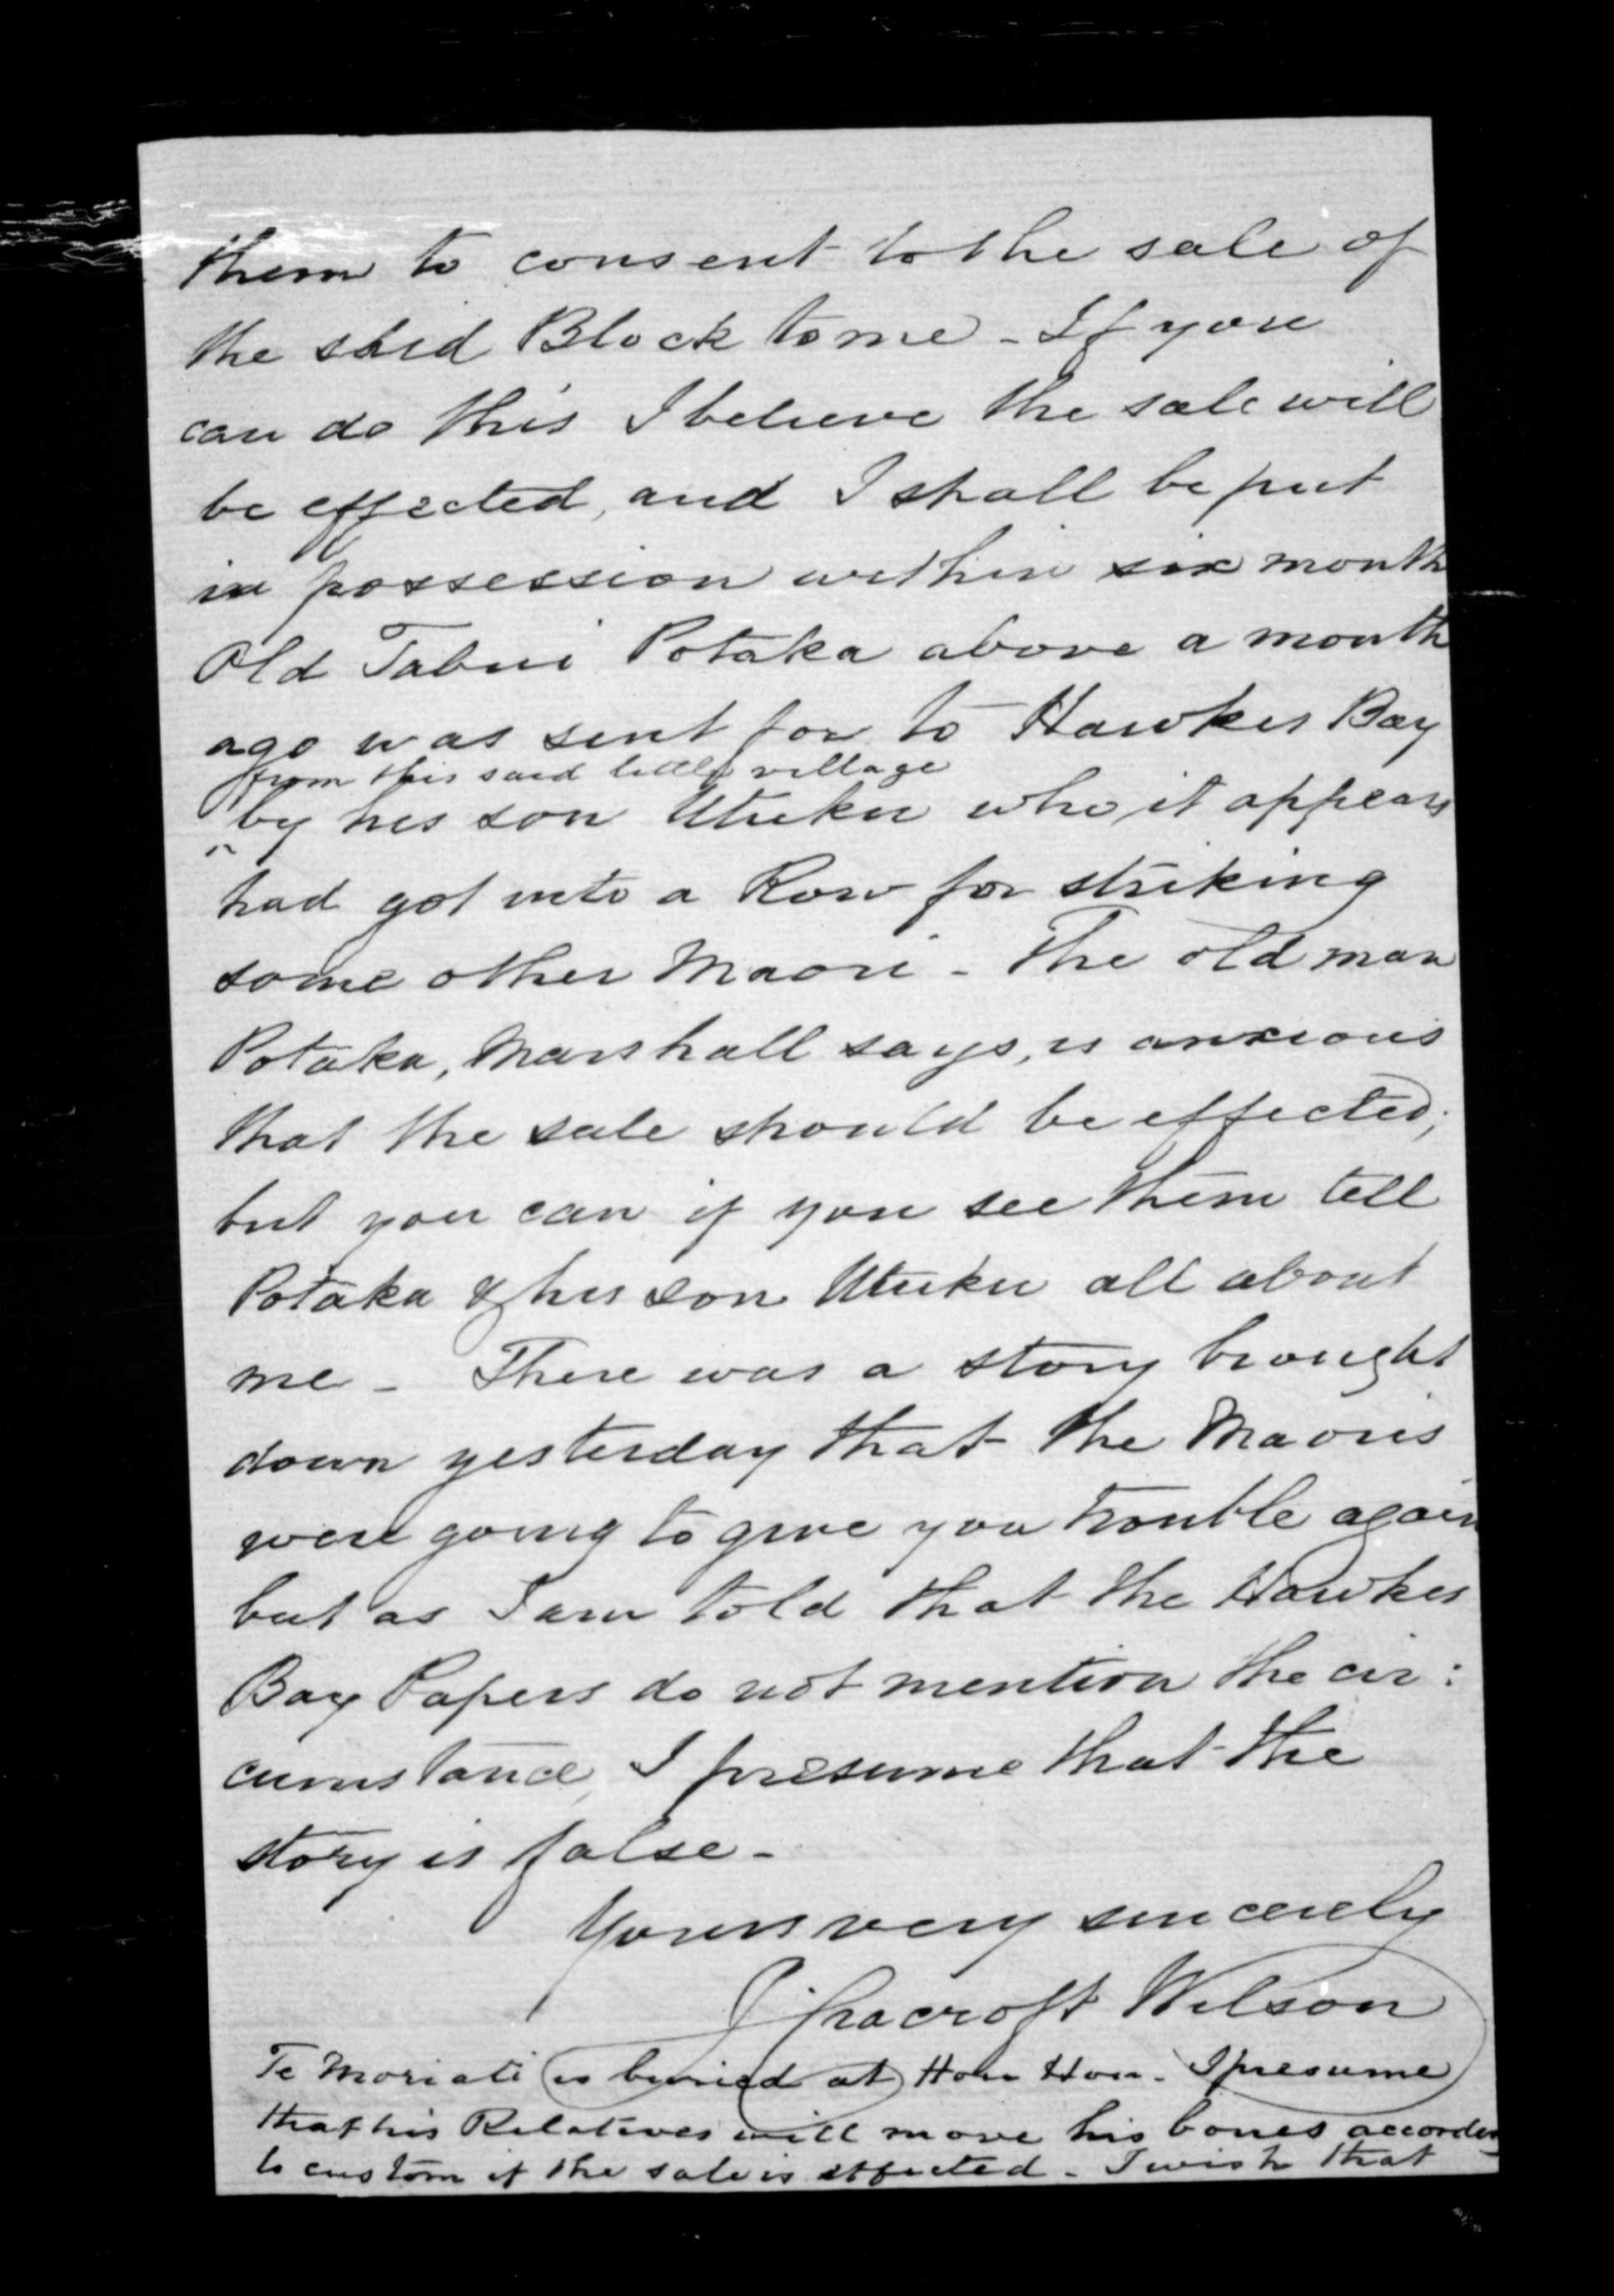 them to consent to the sale of
the said Block to me - If you
can do this I believe the sale will
be effected, and I shall be put
in possession within six month
Old Tabui Potaka above a month
ago was sent for to Hawkes Bay
from this said little village
^ by his son Utuku who it appears
had got into a Row for striking
some other Maori - The old man
Potaka, Marshall says, is anxious
that the sale should be effected;
but you can if you see them tell
Potaka & his son Utuku all about
me - There was a story brought
down yesterday that the Maoris
were going to give you trouble again
but as I am told that the Hawkes
Bay Papers do not mention the cir:
cumstance, I presume that the
story is false -
Yours very sincerely
J Cracroft Wilson
Te Moriati is buried at Hou Hou - I presume
that his Relatives will move his bones accordin
to custom if the sale is effected - I wish that